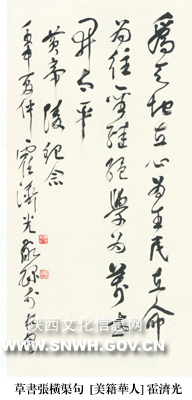 爲天地立心為生民立命
為往聖継絕學為萬世
開太平
黄帝陵紀念
夏仲霍濟光敬録於
陕西文化信息网
WWW.SNWH.GOV.CN
草書張橫渠句 [美籍華人] 霍濟光